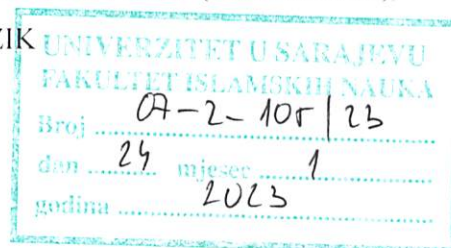 ZIK
UNIVERZITET U SARAJEVU
FAKULTET ISLAMSKIH NAUKA
Broj 07-2-105/23
dan 24 mjesec 1
godina 2023